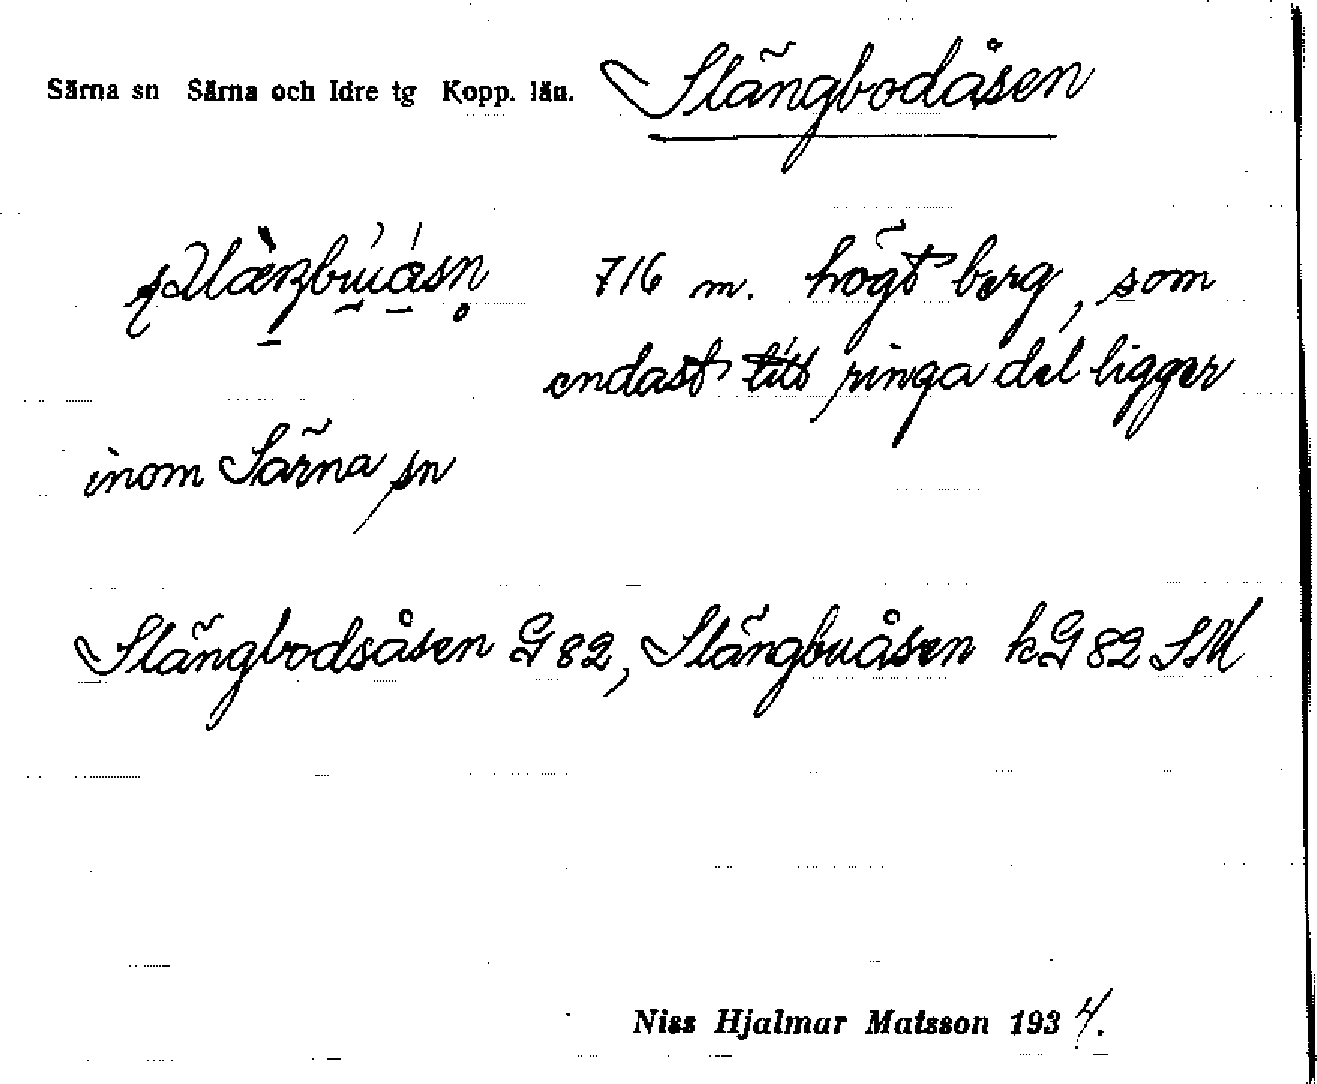 Särna sn Särna och Idre tg Kopp. län. Slängbodåsen
716 m. högt berg, som
endast titt ringa del ligger
inom Särna sn
Slängbodsåsen G 82, Slängbuåsen kG 82 SM
Niss Hjalmar Matsson 1934.